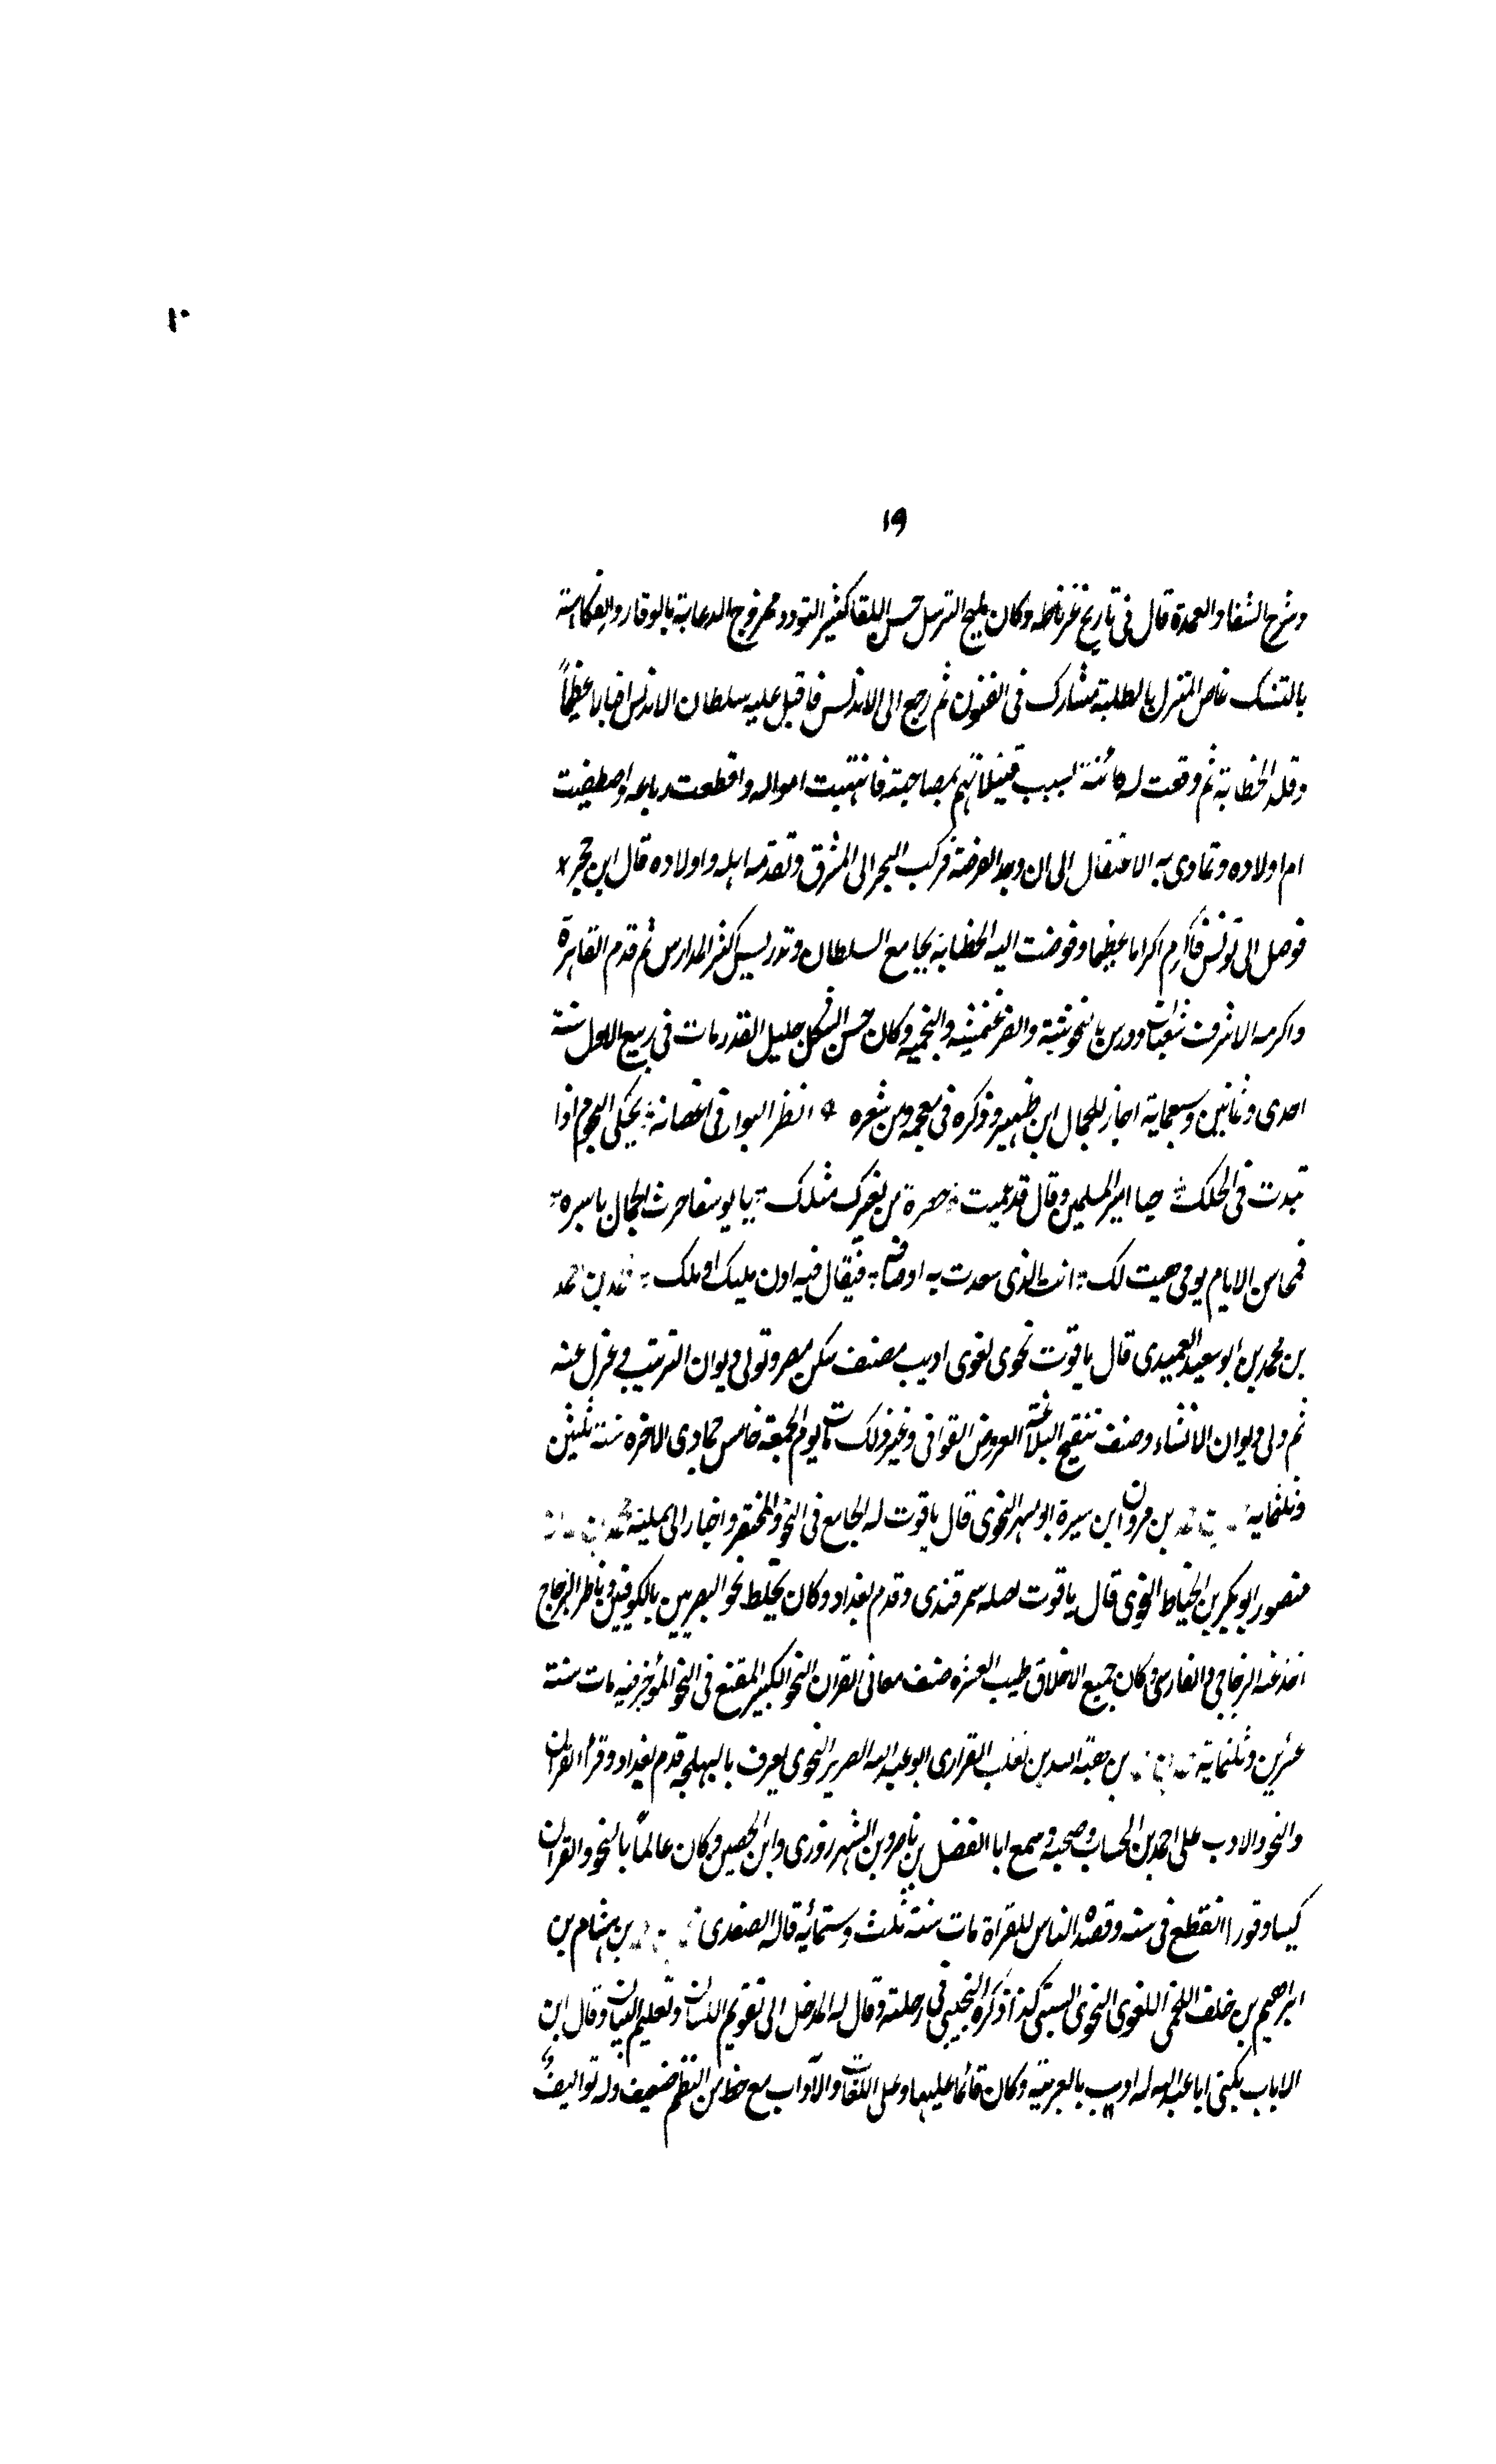 ١٠
١٩
وشرح الشفا والعمدة قال فى تاريخ غرناطه وكان مليح الترسل حسن اللقا كثير التودد ممزوج الدعابة بالوقار والفكاهة
بالتنسك غاص المنزل بالطلبة مشارك فى الفنون ثم رجع الى الاندلس فاقبل عليه سلطان الاندلس اقبالا عظيماً
وقلد الخطابة ثم وقعت له كائنة بسبب قتيل اتهم بمصاحبته فانتهبت امواله واقطعت رباعه واصطفيت
ام اولاده وتمادى به الاعتقال الى ان وجد الفرصة فركب البحر الى المشرق وتقدمه اهله واولاده قال ابن حجر
فوصل الى تونس فاكرم اكراما عظيما وفوضت اليه الخطابة بجامع السلطان وتدريس اكثر المدارس ثم قدم القاهرة
واكرمه الاشرف شعبان ودرس بالشيخونية والصرغتمشية والنجمية وكان حسن الشكل جليل القدر مات فى ربيع الاول سنة
احدى وثمانين وسبعماية اجاز للجمال ابن ظهيرة وذكره فى معجمه ومن شعره انظر النوار فى اغصانه يحكى النجوم اذا
تبدت فى الحلك حيا امير المسلمين وقال قد عميت من بغيرك مثلك يا يوسفا حزت الجمال باسره
فمحاسن الايام تومى هيت لك انت الذى سعدت به اوصافه فيقال فيه اذن مليك او ملك محمد بن احمد
بن محمد بن ابو سعيد العميدى قال ياقوت نحوى لغوى اديب مصنف سكن مصر وتولى ديوان الترتيب وعزل عنه
ثم ولى ديوان الانشاء وصنف تنقيح البلاغة العروض القوافى وغير ذلك مات يوم الجمعة خامس جمادى الاخره سنة ثلثين
وثلثماية بن مروان ابن سبرة ابو مسهر النحوى قال ياقوت له الجامع فى النحو والمختصر واخبار ابى عيينة محمد بن
منصور ابو بكر بن الخياط النحوى قال ياقوت اصله سمرقندى وقدم بغداد وكان يخلط نحو البصريين بالكوفيين وناظر الزجاج
اخذ عنه الزجاجى والفارسى وكان جميع الاخلاق طيب العشرة صنف معانى القران النحو الكبير المقنع فى النحو الموجز فيه مات سنة
عشرين وثلثماية بن هبة الله بن ثعلب الفزارى ابو عبد الله الضرير النحوى يعرف بالبهجة قدم بغداد وقرأ القران
والنحو والادب على احمد بن الخشاب وصحبه وسمع ابا الفضل بن ناصر وبن الشهرزورى وابن الحصين وكان عالماً بالنحو والقران
كيسا وقورا انقطع فى بيته وقصده الناس للقراة مات سنة ثلث وستمائة قاله الصفدى بن هشام بن
ابراهيم بن خلف اللخمى اللغوى النحوى السبتى كذا ذكره التجيبى فى رحلته وقال له المدخل الى تقويم اللسان وتعليم البيان وقال ابن
الابار يكنى ابا عبد الله له ادب بالعربية وكان قائما عليها وعلى اللغات والآداب مع حظ من النظم ضعيف وله تواليف